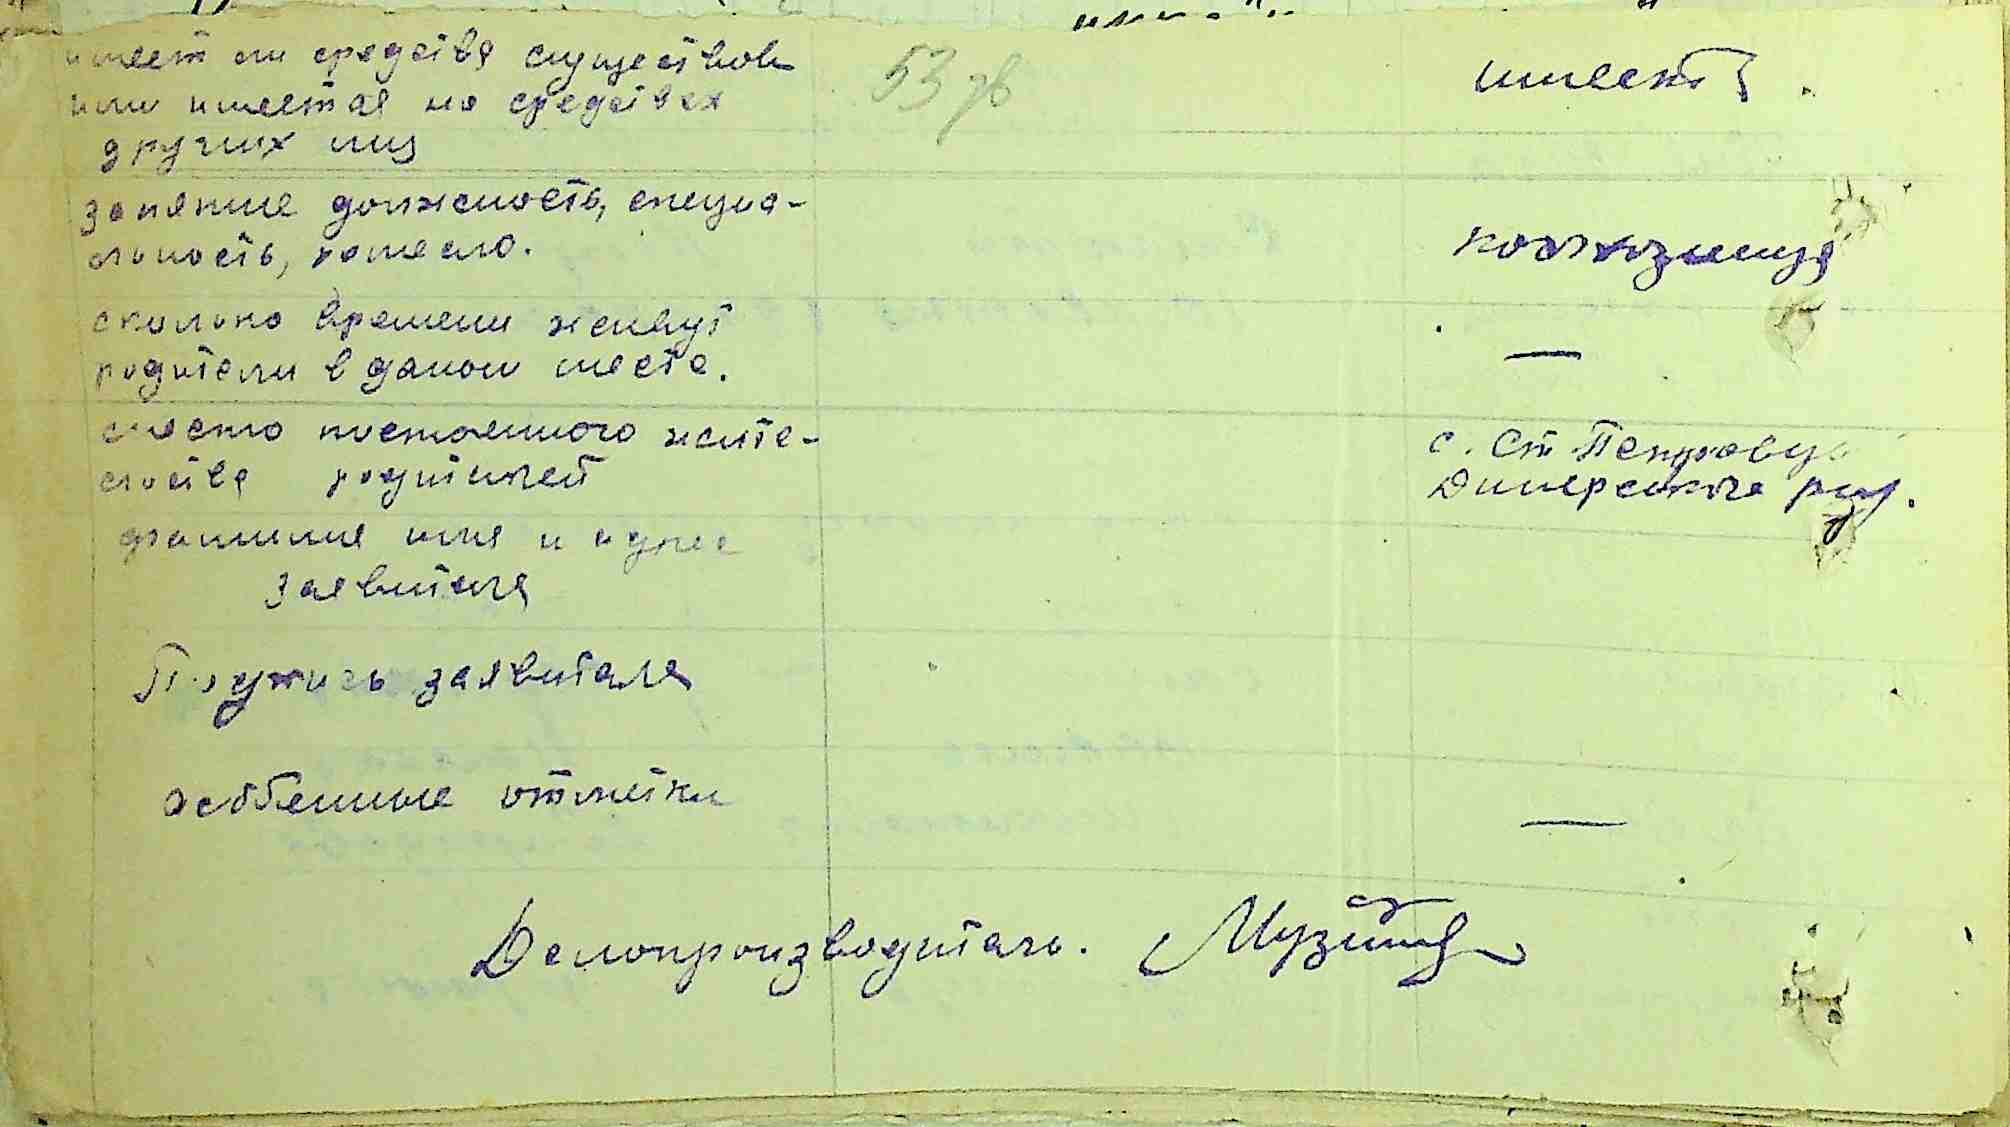 имеет ли средства существов
или имеется на средствах
других лиц
53 зв
имеет
занятие должность, специа-
льность, ремесло.
колхозница
сколько времени живут
родители в даном месте.
—
место постоянного жите-
льства родителей
с. Ст Петровцы
Димерского рну.
фамилия имя и адрес
заявителя
Подпись заявителя
особенные отметки
—
Делопроизводитель.